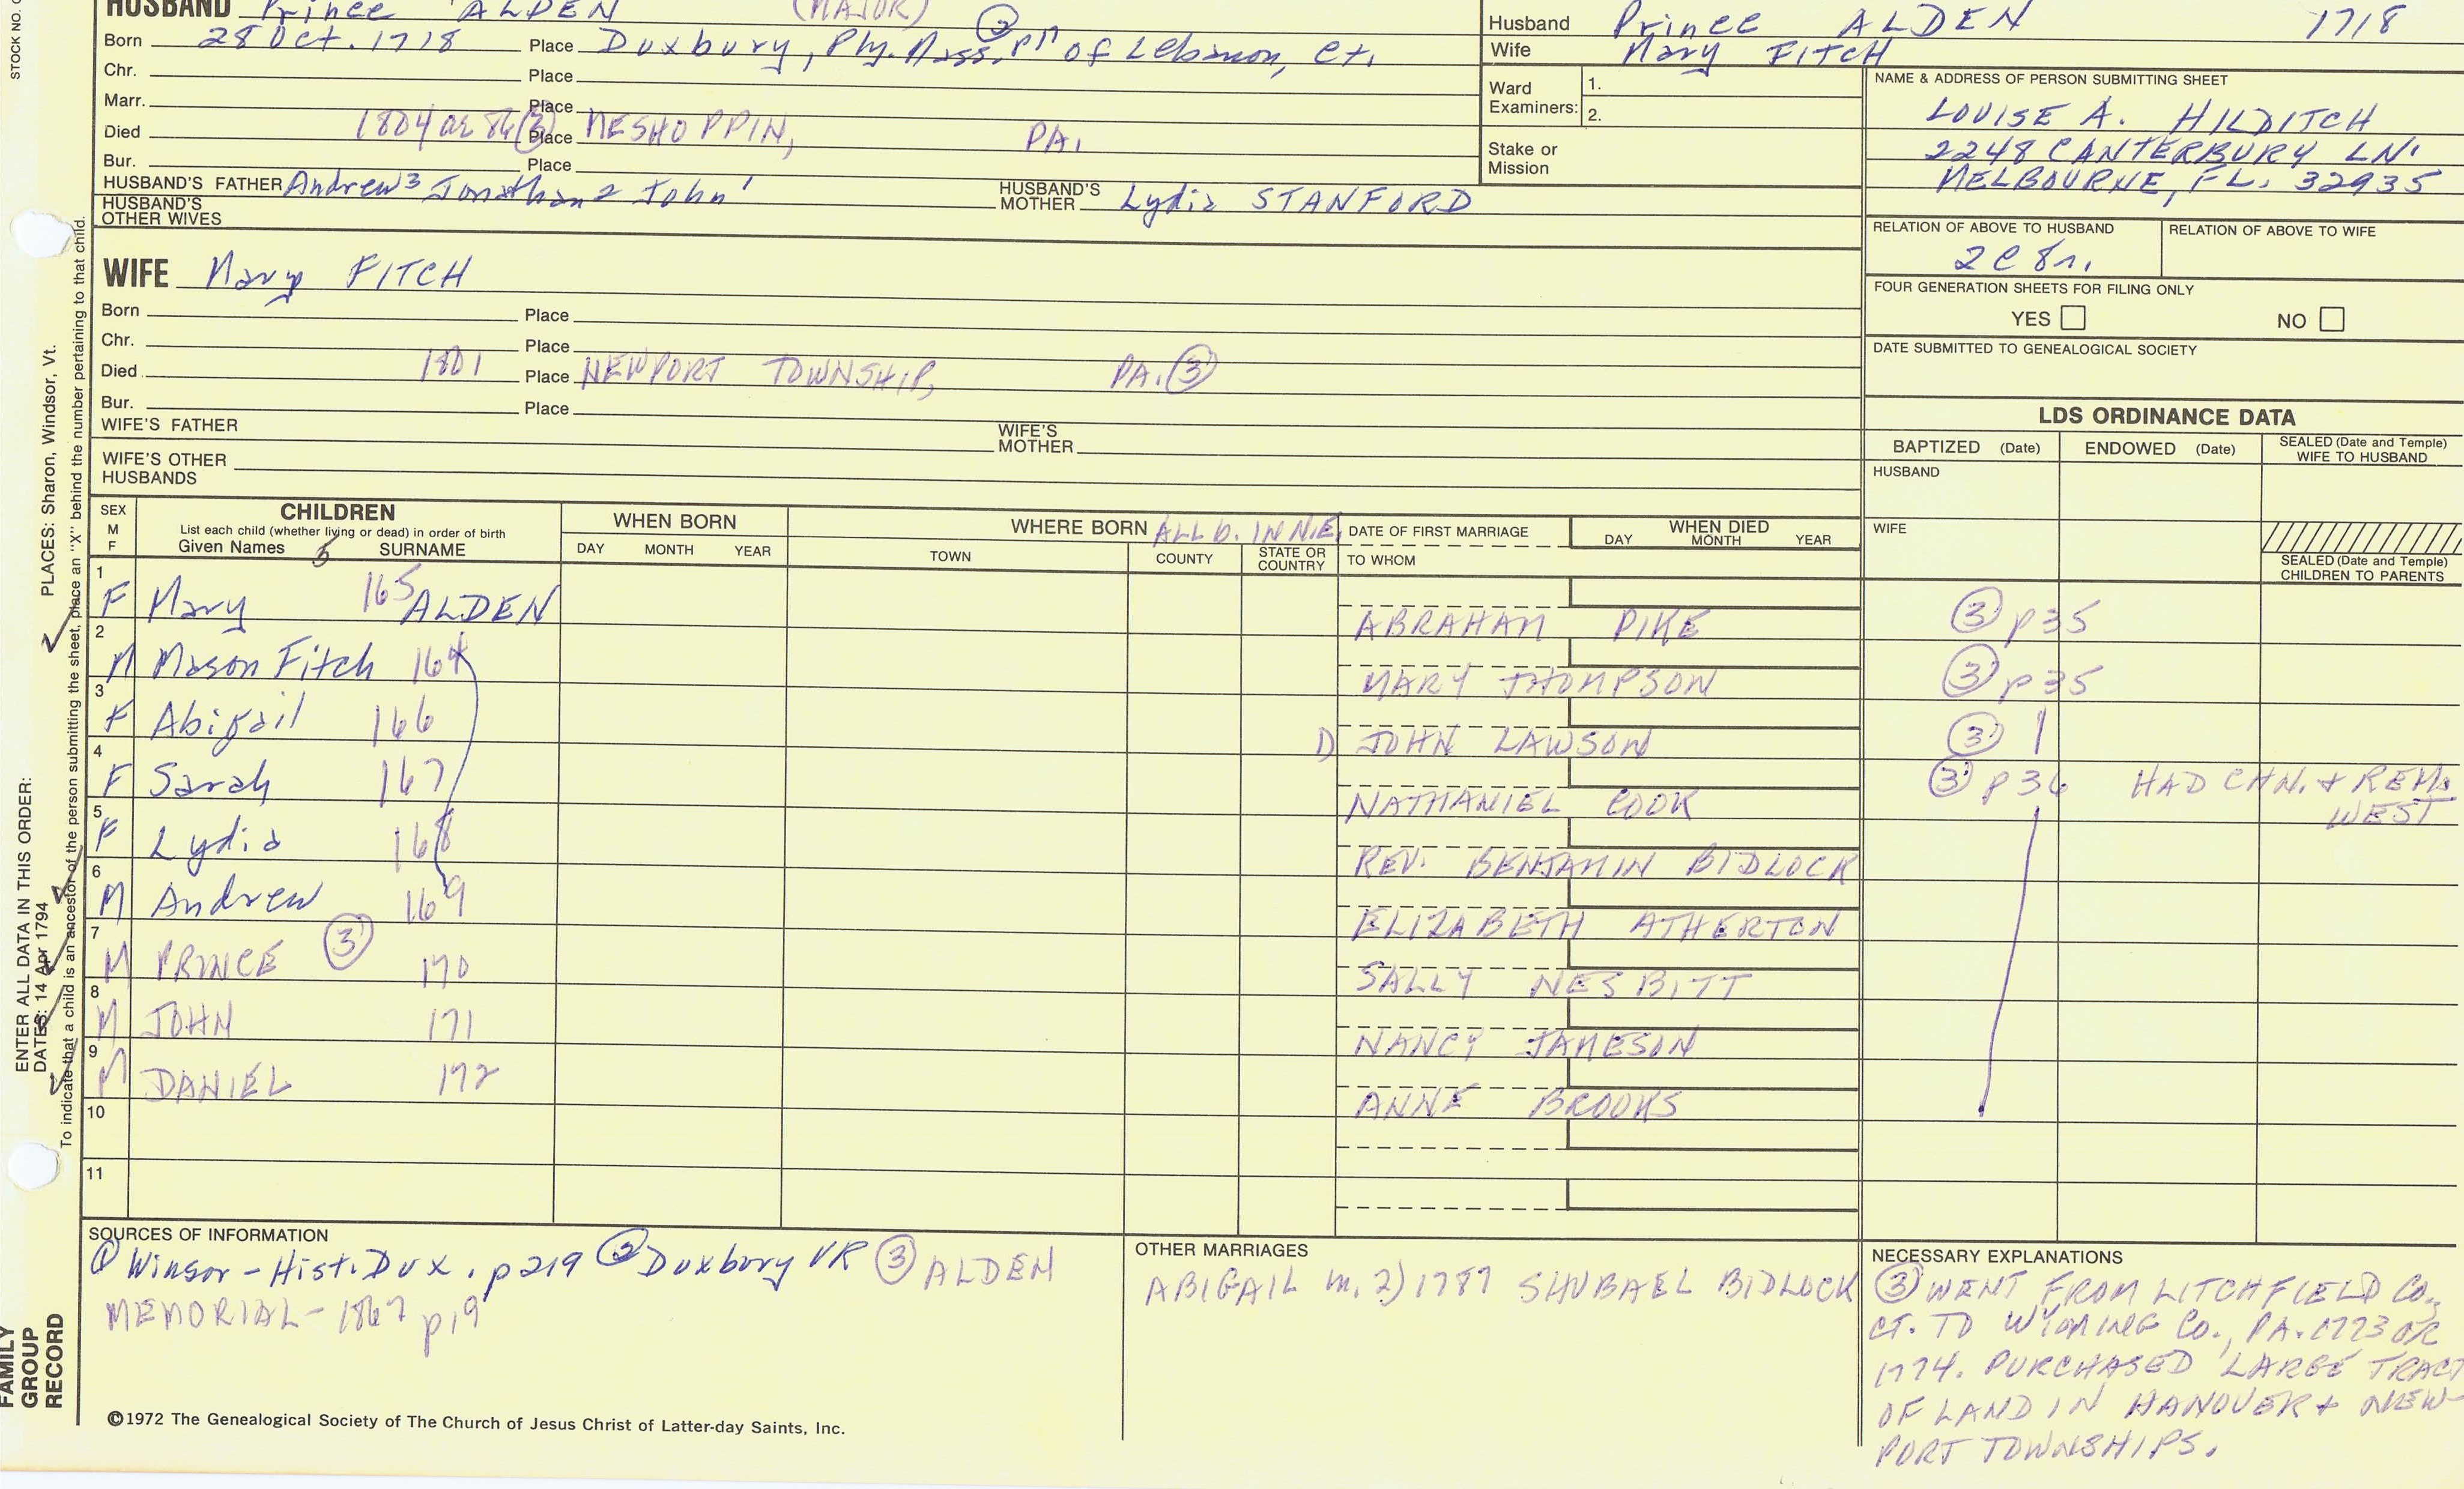 HUSBAND Prince ALDEN (MAJOR)
Born 28 Oct. 1718 Place Duxbury, Ply. Mass. ② of Lebanon, Ct.
Chr. Place
Marr. Place
Died 1804 or (3) Place MESHOPPIN, PA.
Bur. Place
HUSBAND'S FATHER Andrew³ Jonathan² John¹ HUSBAND'S MOTHER Lydia STANFORD
HUSBAND'S OTHER WIVES
Husband Prince ALDEN 1718
Wife Mary FITCH
Ward Examiners: 1.
2.
Stake or Mission
NAME & ADDRESS OF PERSON SUBMITTING SHEET
LOUISE A. HILDITCH
2248 CANTERBURY LN.
MELBOURNE, FL. 32935
RELATION OF ABOVE TO HUSBAND RELATION OF ABOVE TO WIFE
2C 8r.
FOUR GENERATION SHEETS FOR FILING ONLY
YES NO
DATE SUBMITTED TO GENEALOGICAL SOCIETY
WIFE Mary FITCH
Born Place
Chr. Place
Died 1801 Place NEWPORT TOWNSHIP, PA. ③
Bur. Place
WIFE'S FATHER WIFE'S MOTHER
WIFE'S OTHER HUSBANDS
LDS ORDINANCE DATA
BAPTIZED (Date) ENDOWED (Date) SEALED (Date and Temple) WIFE TO HUSBAND
HUSBAND
WIFE
SEALED (Date and Temple) CHILDREN TO PARENTS
SEX M F
CHILDREN
List each child (whether living or dead) in order of birth
Given Names SURNAME
WHEN BORN
DAY MONTH YEAR
WHERE BORN ALL b. IN N.E.
TOWN COUNTY STATE OR COUNTRY
DATE OF FIRST MARRIAGE
TO WHOM
WHEN DIED
DAY MONTH YEAR
1 F Mary 165 ALDEN ABRAHAM PIKE ③ p35
2 M Mason Fitch 164 MARY THOMPSON ③ p35
3 F Abigail 166 1) JOHN LAWSON ③
4 F Sarah 167 NATHANIEL COOK ③ p36 HAD CHN. + REM. WEST
5 F Lydia 168 REV. BENJAMIN BIDLOCK
6 M Andrew 169 ELIZABETH ATHERTON
7 M PRINCE ③ 170 SALLY NESBITT
8 M JOHN 171 NANCY JAMESON
9 M DANIEL 172 ANNE BROOKS
10
11
SOURCES OF INFORMATION
① Winsor - Hist. Dux. p219 ② Duxbury VR ③ ALDEN
MEMORIAL - 1867 p19
OTHER MARRIAGES
ABIGAIL m. 2) 1787 SHUBAEL BIDLOCK
NECESSARY EXPLANATIONS
③ WENT FROM LITCHFIELD CO.,
CT. TO WYOMING CO., PA. 1773 OR
1774. PURCHASED LARGE TRACT
OF LAND IN HANOVER + NEW-
PORT TOWNSHIPS.
©1972 The Genealogical Society of The Church of Jesus Christ of Latter-day Saints, Inc.
STOCK NO.
ENTER ALL DATA IN THIS ORDER:
PLACES: Sharon, Windsor, Vt.
DATES: 14 Apr 1794
To indicate that a child is an ancestor of the person submitting the sheet, place an "X" behind the number pertaining to that child.
FAMILY
GROUP
RECORD